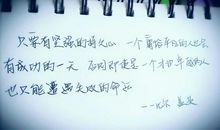 只要有坚强的持久心 一个庸俗平凡的人也会
有成功的一天 否则即使是一个才识卓越的人
也只能遭遇失败的命运